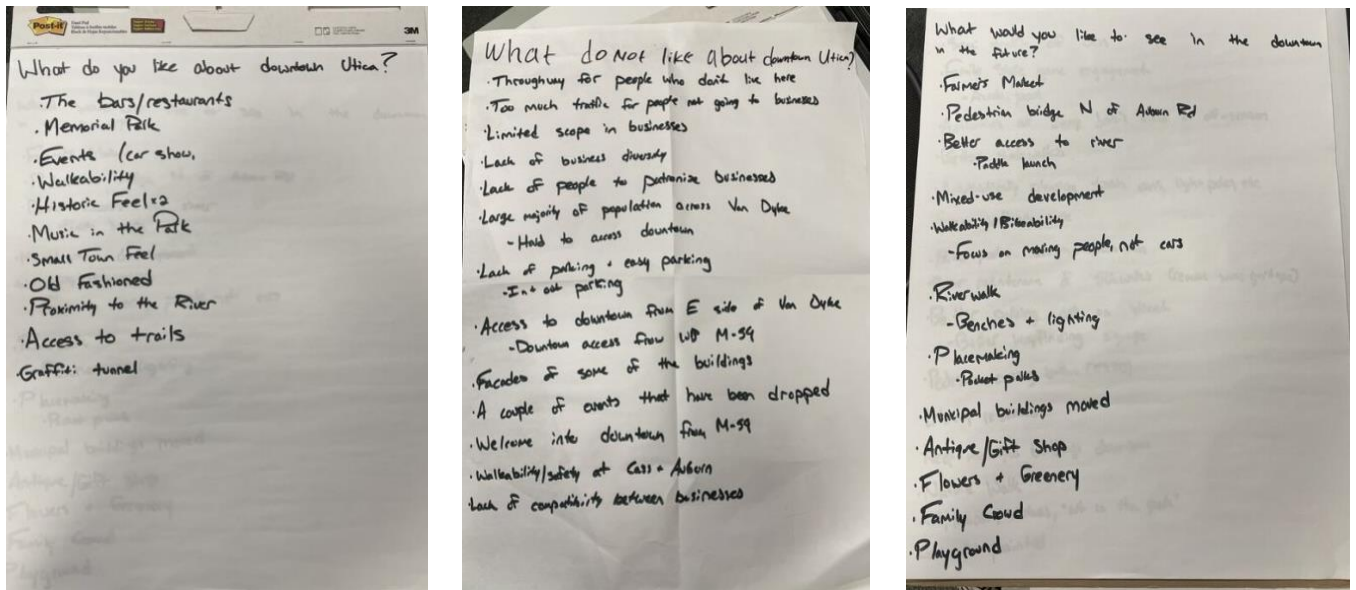 Post-it
3M
What do you like about downtown Utica?
·The bars/restaurants
·Memorial Park
·Events /car show,
·Walkability
·Historic Feel x2
·Music in the Park
·Small Town Feel
·Old Fashioned
·Proximity to the River
·Access to trails
·Graffiti tunnel
What do NOT like about downtown Utica?
·Throughway for people who don't live here
·Too much traffic for people not going to businesses
·Limited scope in businesses
·Lack of business diversity
·Lack of people to patronize businesses
·Large majority of population across Van Dyke
-Hard to access downtown
·Lack of parking + easy parking
·In + out parking
·Access to downtown from E side of Van Dyke
-Downtown access from M-59
·Facades of some of the buildings
·A couple of events that have been dropped
·Welcome into downtown from M-59
·Walkability/safety at Cass + Auburn
·Lack of compatibility between businesses
What would you like to see in the downtown
in the future?
·Farmer's Market
·Pedestrian bridge N of Auburn Rd
·Better access to river
·Paddle launch
·Mixed-use development
·Walkability/Bikeability
-Focus on moving people, not cars
·Riverwalk
-Benches + lighting
·Placemaking
·Pocket parks
·Municipal buildings moved
·Antique/Gift Shop
·Flowers + Greenery
·Family Crowd
·Playground